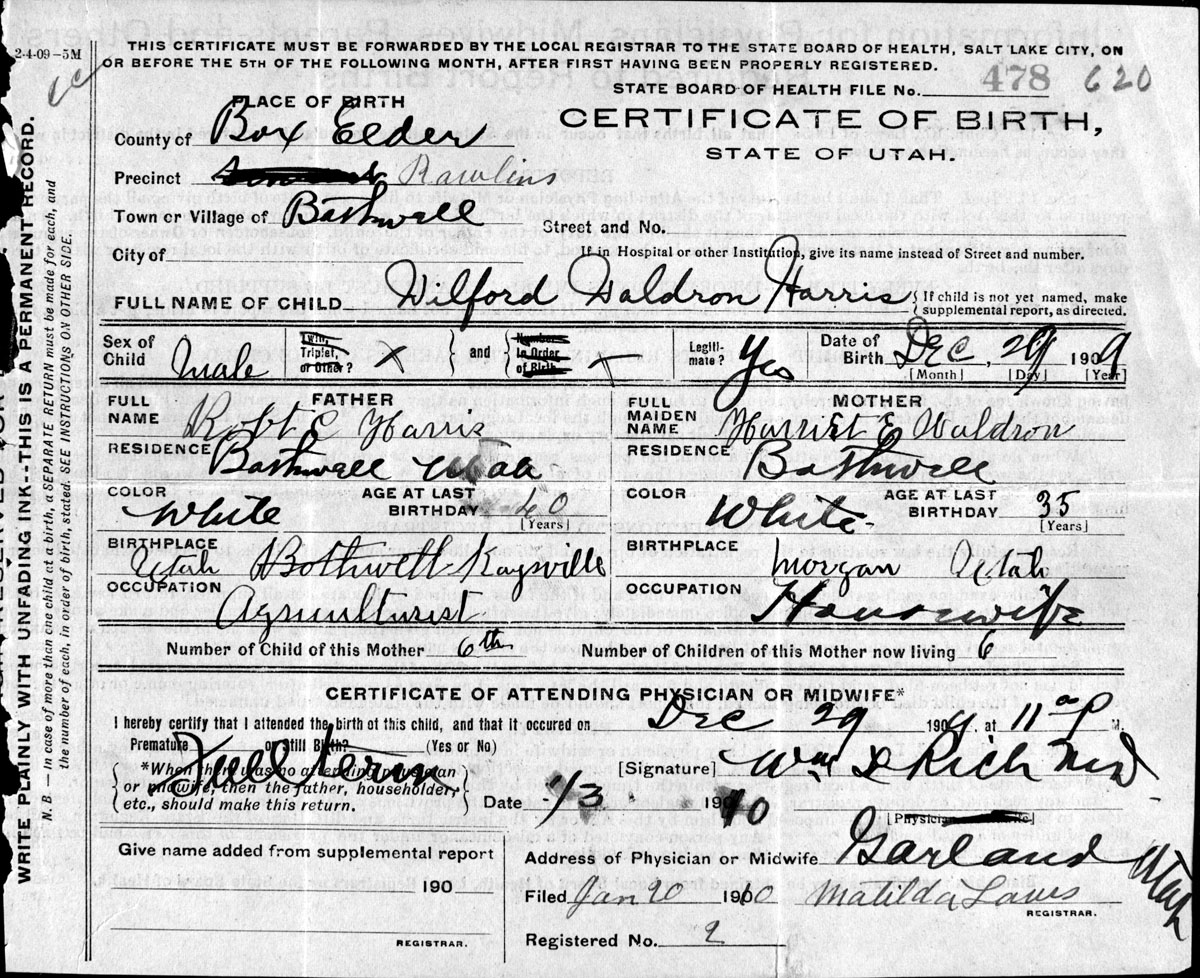 2-4-09-5M
THIS CERTIFICATE MUST BE FORWARDED BY THE LOCAL REGISTRAR TO THE STATE BOARD OF HEALTH, SALT LAKE CITY, ON
OR BEFORE THE 5TH OF THE FOLLOWING MONTH, AFTER FIRST HAVING BEEN PROPERLY REGISTERED.
STATE BOARD OF HEALTH FILE No. 478 620
PLACE OF BIRTH
CERTIFICATE OF BIRTH,
STATE OF UTAH.
County of Box Elder
Precinct Rawlins
Town or Village of Bothwell
Street and No.
City of
If in Hospital or other Institution, give its name instead of Street and number.
FULL NAME OF CHILD Wilford Waldron Harris { If child is not yet named, make supplemental report, as directed.
Sex of Child Male Twin, Triplet, or Other? X } and { Number in Order of Birth X Legiti-mate? Yes Date of Birth Dec, 29 1909
[Month] [Day] [Year]
FATHER
FULL NAME Robt E Harris
RESIDENCE Bothwell Utah
COLOR White AGE AT LAST BIRTHDAY 40 [Years]
BIRTHPLACE Utah Bothwell Kaysville
OCCUPATION Agriculturist
MOTHER
FULL MAIDEN NAME Harriet E Waldron
RESIDENCE Bothwell
COLOR White AGE AT LAST BIRTHDAY 35 [Years]
BIRTHPLACE Morgan Utah
OCCUPATION Housewife
Number of Child of this Mother 6th Number of Children of this Mother now living 6
CERTIFICATE OF ATTENDING PHYSICIAN OR MIDWIFE*
I hereby certify that I attended the birth of this child, and that it occured on Dec 29 1909, at 11 P M.
Premature or Still Birth? (Yes or No)
Full term
{ *When there was no attending physician or midwife, then the father, householder, etc., should make this return. }
[Signature] Wm L Rich MD
Date 1/3 1910
[Physician or Midwife]
Give name added from supplemental report
190
REGISTRAR.
Address of Physician or Midwife Garland Utah
Filed Jan 20 1910 Matilda Laws
REGISTRAR.
Registered No. 2
WRITE PLAINLY WITH UNFADING INK--THIS IS A PERMANENT RECORD.
N. B. — In case of more than one child at a birth, a SEPARATE RETURN must be made for each, and
the number of each, in order of birth, stated. SEE INSTRUCTIONS ON OTHER SIDE.